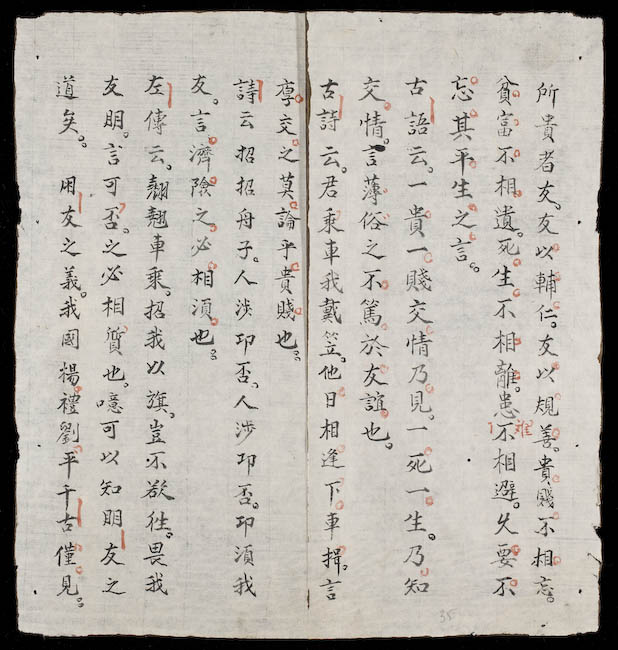 所貴者友。友以輔仁。友以規善。貴賤不相忘。
貧富不相遺。死生不相離。患难不相避。久要不
忘其平生之言。
古語云。一貴一賤交情乃見。一死一生。乃知
交情。言薄俗之不篤於友誼也。
古詩云。君乘車我戴笠。他日相逢下車揖。言
厚交之莫論乎貴賤也。
詩云招招舟子。人涉卬否。人涉卬否。卬須我
友。言濟險之必相須也。
左傳云。翹翹車乘。招我以旗。豈不欲徃。畏我
友朋。言可否。之必相質也。噫可以知朋友之
道矣。用友之義。我國楊禮劉平千古僅見。
35